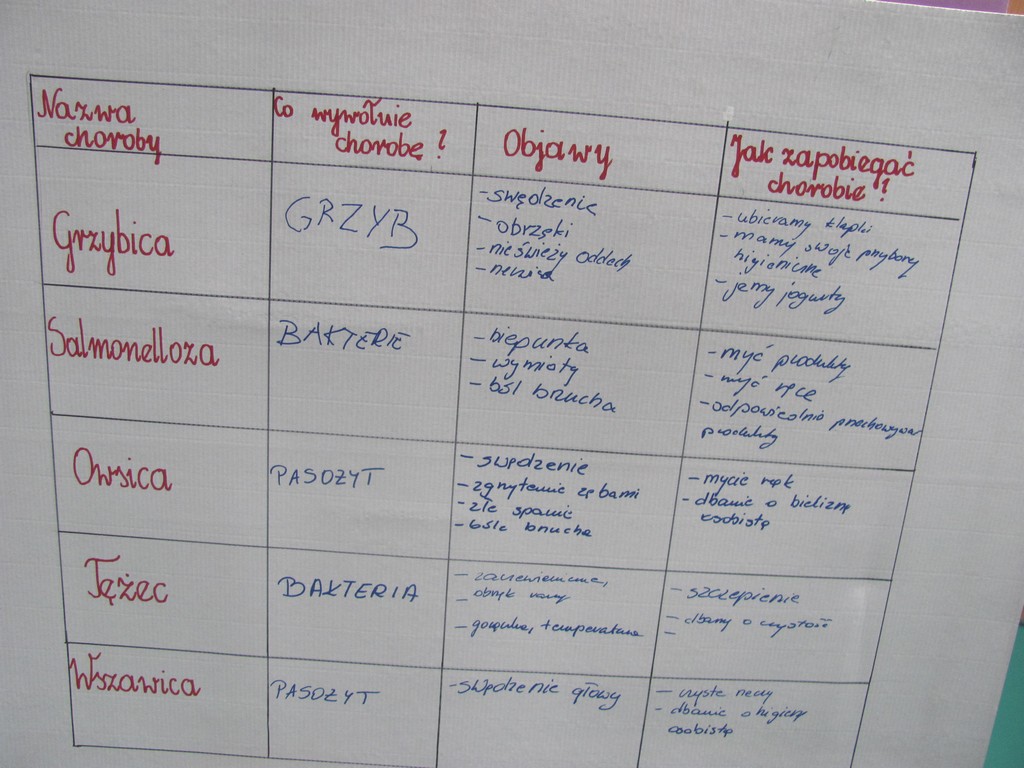 Nazwa
choroby
Co wywołuje
chorobę?
Objawy
Jak zapobiegać
chorobie?
Grzybica
GRZYB
- swędzenie
- obrzęki
- nieświeży oddech
- ubieramy klapki
- mamy swoje przybory
higieniczne
- jemy jogurty
Salmonelloza
BAKTERIE
- biegunka
- wymioty
- ból brzucha
- myć produkty
- myć ręce
- odpowiednio przechowywać
produkty
Owsica
PASOŻYT
- swędzenie
- zgrzytanie zębami
- złe spanie
- bóle brzucha
- mycie rąk
- dbanie o bieliznę
osobistą
Tężec
BAKTERIA
- zaczerwienienie,
- obrzęk rany
- gorączka, temperatura
- szczepienie
- dbamy o czystość
-
Wszawica
PASOŻYT
- swędzenie głowy
- czyste rzeczy
- dbanie o higienę
osobistą